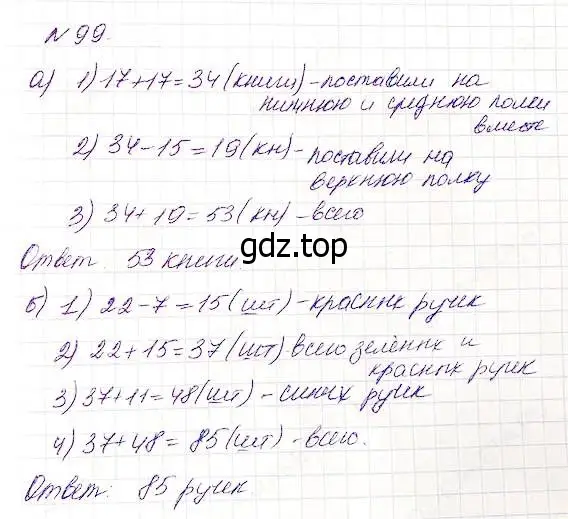 № 99.
а) 1) 17+17=34 (книги) - поставили на
нижнюю и среднюю полки
вместе
2) 34-15=19 (кн) - поставили на
верхнюю полку
3) 34+19=53 (кн) - всего
gdz.top
Ответ: 53 книги.
б) 1) 22-7=15 (шт) - красных ручек
2) 22+15=37 (шт) всего зелёных и
красных ручек
3) 37+11=48 (шт) - синих ручек
4) 37+48=85 (шт) - всего.
Ответ: 85 ручек